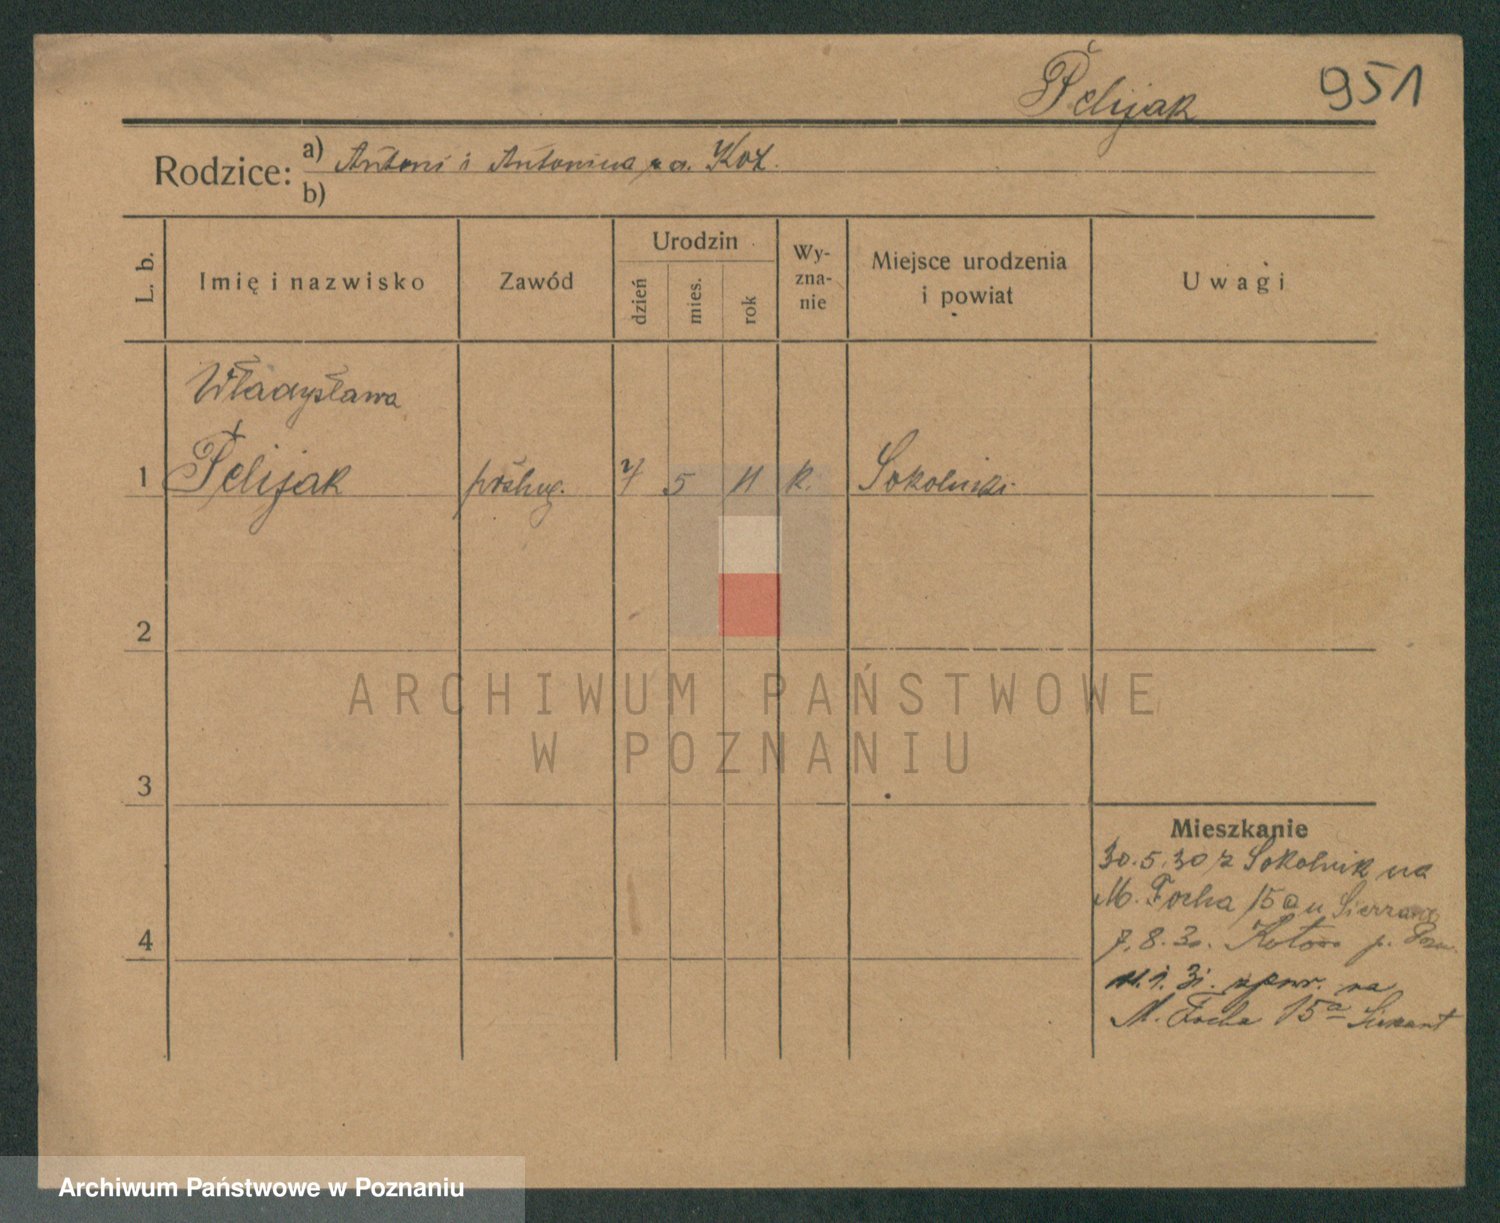 Pelijak 951
Rodzice: a) Antoni i Antonina z d. Koł.
b)
L. b. Imię i nazwisko Zawód Urodzin dzień mies. rok Wyznanie Miejsce urodzenia i powiat Uwagi
Władysława
1 Pelijak posług. 7 5 11 k. Sokolniki
2
3
4
Mieszkanie
30.5.30 z Sokolnik na
M. Focha 15a u
7.8.30. Kotowo p. Pozn.
11.1.31. spowr. na
M. Focha 15a
ARCHIWUM PAŃSTWOWE
W POZNANIU
Archiwum Państwowe w Poznaniu